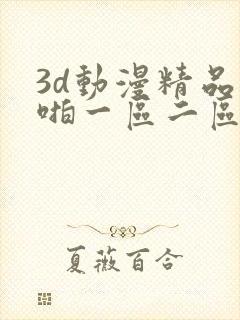 3d動漫精品
啪一區二區
夏薇百合